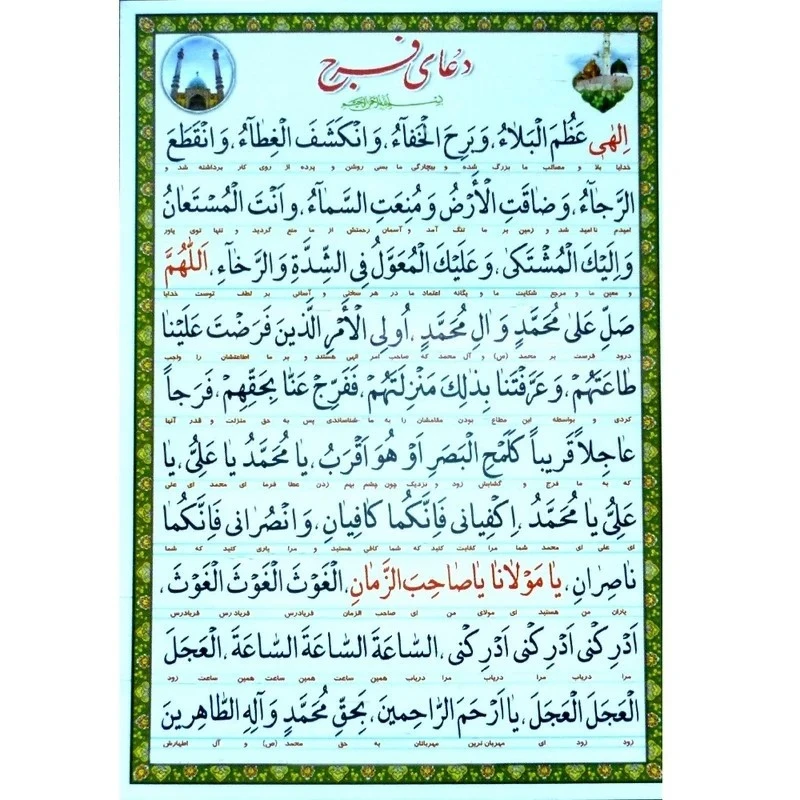 دعای فرج
بسم الله الرحمن الرحیم
اِلٰهی عَظُمَ الْبَلاٰءُ، وَبَرِحَ الْخَفٰاءُ، وَانْكَشَفَ الْغِطٰاءُ، وَانْقَطَعَ
خدایا بلا و مصائب ما بزرگ شده و بیچارگی ما بسی روشن و پرده از روی کار برداشته شد و
الرَّجٰاءُ، وَضاقَتِ الْأَرْضُ وَمُنِعَتِ السَّمٰاءُ، وَاَنْتَ الْمُسْتَعٰانُ
امیدم ناامید شد و زمین بر ما تنگ آمد و آسمان رحمتش از ما منع گردید و تنها توی یاور
وَاِلَیْكَ الْمُشْتَكىٰ، وَعَلَیْكَ الْمُعَوَّلُ فِی الشِّدَّةِ وَالرَّخٰاءِ، اَللّٰهُمَّ
و معین ما و مرجع شکایت ما و یگانه اعتماد ما در هر سختی و آسانی بر لطف توست خدایا
صَلِّ عَلىٰ مُحَمَّدٍ وَ اٰلِ مُحَمَّدٍ، اُولِی الْأَمْرِ الَّذینَ فَرَضْتَ عَلَیْنٰا
درود فرست بر محمد (ص) و آل محمد که صاحب امر الهی هستند و بر ما اطاعتشان را واجب
طٰاعَتَهُمْ، وَعَرَّفْتَنٰا بِذٰلِكَ مَنْزِلَتَهُمْ، فَفَرِّجْ عَنّٰا بِحَقِّهِمْ، فَرَجاً
کردی و بواسطه این مطاع بودن مقامشان را به ما شناساندی پس به حق منزلت و قدر آنها
عٰاجِلاً قَریباً كَلَمْحِ الْبَصَرِ اَوْ هُوَ اَقْرَبُ، یٰا مُحَمَّدُ یٰا عَلِیُّ، یٰا
که به ما فرج و گشایش زود و نزدیک چون چشم بهم زدن عطا فرما ای محمد ای علی
عَلِیُّ یٰا مُحَمَّدُ، اِكْفِیٰانی فَاِنَّكُمٰا كٰافِیٰانِ، وَانْصُرٰانی فَاِنَّكُمٰا
ای علی ای محمد شما مرا کفایت کنید که شما کافی هستید و مرا یاری کنید که شما
نٰاصِرٰانِ، یٰا مَوْلٰانٰا یٰا صٰاحِبَ الزَّمٰانِ، الْغَوْثَ الْغَوْثَ الْغَوْثَ،
یاران من هستید ای مولای من ای صاحب الزمان فریادرس فریادرس فریادرس
اَدْرِكْنی اَدْرِكْنی اَدْرِكْنی، السّٰاعَةَ السّٰاعَةَ السّٰاعَةَ، الْعَجَلَ
مرا دریاب مرا دریاب مرا دریاب همین ساعت همین ساعت همین ساعت زود
الْعَجَلَ الْعَجَلَ، یٰا اَرْحَمَ الرّٰاحِمینَ، بِحَقِّ مُحَمَّدٍ وَآلِهِ الطّٰاهِرینَ
زود زود ای مهربان ترین مهربانان به حق محمد (ص) و آل اطهارش